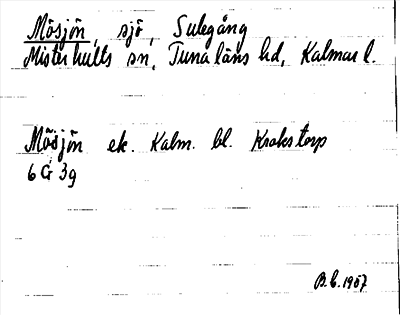 Mösjön, sjö, Sulegång
Misterhults sn, Tunaläns hd, Kalmar l.
Mösjön ek. Kalm. bl. Krokstorp
6 G 3g
B.C. 1957